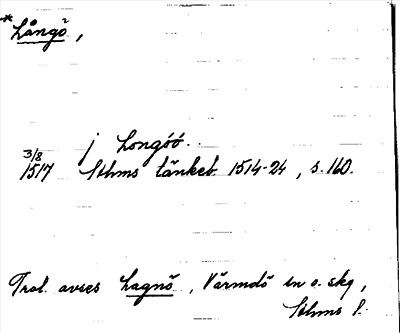 *Långö,
j Longóó.
3/8
1517 Sthms tänkeb. 1514-24, s. 160.
Trol. avses Lagnö, Värmdö sn o. skg,
Sthms l.